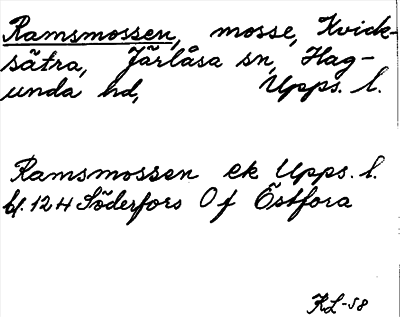 Ramsmossen, mosse, Kvick-
sätra, Järlåsa sn, Hag-
unda hd, Upps. l.
Ramsmossen ek Upps. l.
bl. 124 Söderfors Of Östfora
KL-58